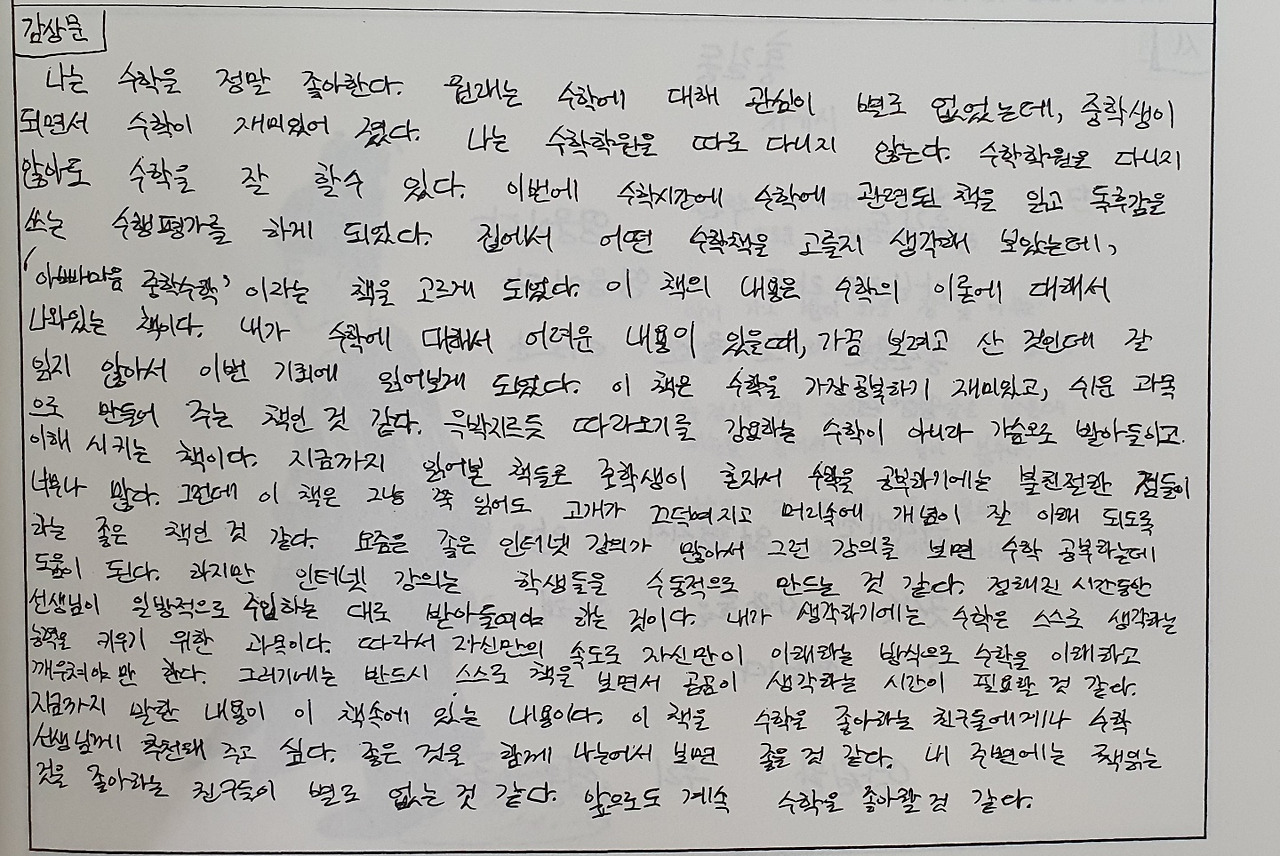 감상문
나는 수학을 정말 좋아한다. 원래는 수학에 대해 관심이 별로 없었는데, 중학생이
되면서 수학이 재미있어 졌다. 나는 수학학원을 따로 다니지 않는다. 수학학원을 다니지
않아도 수학을 잘 할수 있다. 이번에 수학시간에 수학에 관련된 책을 읽고 독후감을
쓰는 수행평가를 하게 되었다. 집에서 어떤 수학책을 고를지 생각해 보았는데,
'아빠마음 중학수학' 이라는 책을 고르게 되었다. 이 책의 내용은 수학의 이론에 대해서
나와있는 책이다. 내가 수학에 대해서 어려운 내용이 있을때, 가끔 보려고 산 것인데 잘
읽지 않아서 이번 기회에 읽어보게 되었다. 이 책은 수학을 가장 공부하기 재미있고, 쉬운 과목
으로 만들어 주는 책인 것 같다. 윽박지르듯 따라오기를 강요하는 수학이 아니라 가슴으로 받아들이고
이해 시키는 책이다. 지금까지 읽어본 책들은 중학생이 혼자서 수학을 공부하기에는 불친절한 점들이
너무나 많다. 그런데 이 책은 그냥 쭉 읽어도 고개가 끄덕여 지고 머리속에 개념이 잘 이해 되도록
하는 좋은 책인 것 같다. 요즘은 좋은 인터넷 강의가 많아서 그런 강의를 보면 수학 공부하는데
도움이 된다. 하지만 인터넷 강의는 학생들을 수동적으로 만드는 것 같다. 정해진 시간동안
선생님이 일방적으로 주입하는 대로 받아들여야 하는 것이다. 내가 생각하기에는 수학은 스스로 생각하는
능력을 키우기 위한 과목이다. 따라서 자신만의 속도로 자신만이 이해하는 방식으로 수학을 이해하고
깨우쳐야 만 한다. 그러기에는 반드시 스스로 책을 보면서 곰곰이 생각하는 시간이 필요할 것 같다.
지금까지 말한 내용이 이 책속에 있는 내용이다. 이 책을 수학을 좋아하는 친구들에게나 수학
선생님께 추천해 주고 싶다. 좋은 것을 함께 나누어서 보면 좋을 것 같다. 내 주변에는 책읽는
것을 좋아하는 친구들이 별로 없는 것 같다. 앞으로도 계속 수학을 좋아할 것 같다.